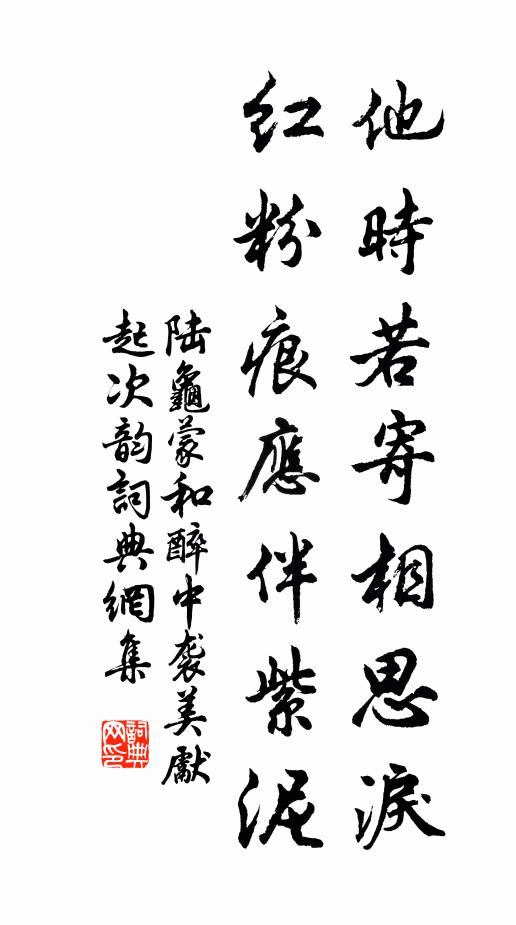 他時若寄相思淚
紅粉痕應伴紫泥
陸龜蒙和醉中襲美獻
起次韵詞典網集
詞典
网印